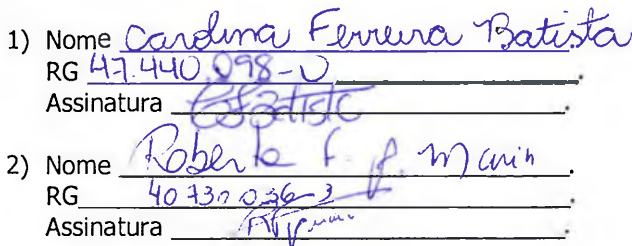 1) Nome Carolina Ferreira Batista
RG 47.440.098-0
Assinatura CFBatista.
2) Nome Roberta F. J. Marin.
RG 40730036-3.
Assinatura.